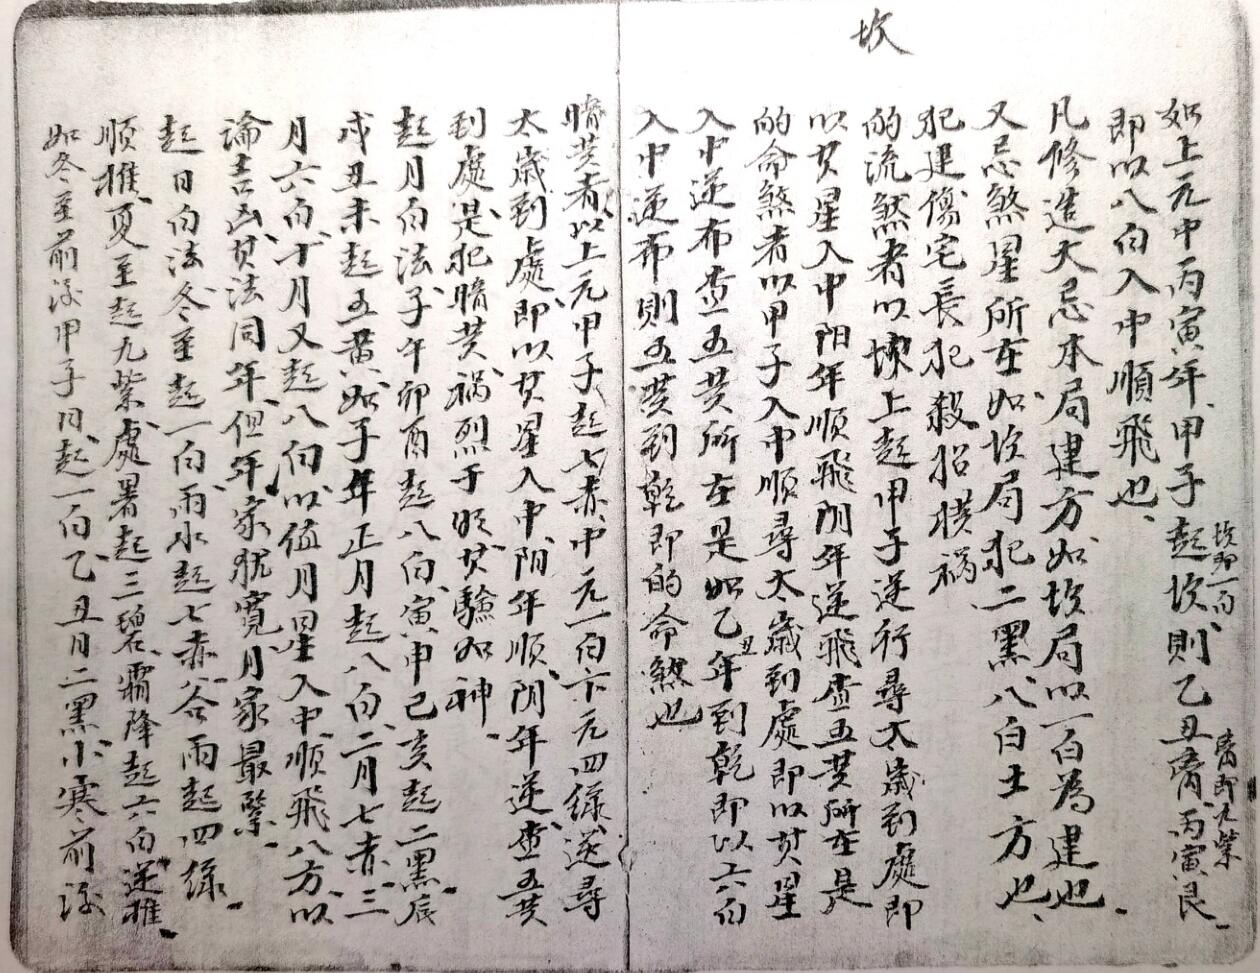 坎
如上元中丙寅年甲子起坎則乙丑离丙寅艮
坎即一白
离即九紫
即以八白入中順飛也
凡修造大忌本局建方如坎局以一白為建也
又忌煞星所在如坎局犯二黑八白土方也
犯建傷宅長犯殺招横禍
的流煞者以坎上起甲子逆行尋太歲到處即
以其星入中阳年順飛阴年逆飛查五黄所在是
的命煞者以甲子入中順尋太歲到處即以其星
入中逆布查五黄所在是如乙丑年到乾即以六白
入中逆布則五黄到乾即的命煞也
暗黄者以上元甲子起七赤中元一白下元四綠逆尋
太歲到處即以其星入中阳年順阴年逆查五黄
到處是犯暗黄禍烈于明黄驗如神
起月白法子午卯酉起八白寅申巳亥起二黑辰
戌丑未起五黄如子年正月起八白二月七赤三
月六白十月又起八白以值月星入中順飛八方以
論吉凶其法同年但年家犹寬月家最緊
起日白法冬至起一白雨水起七赤谷雨起四綠
順推夏至起九紫處暑起三碧霜降起六白逆推
如冬至前後甲子日起一白乙丑日二黑小寒前後